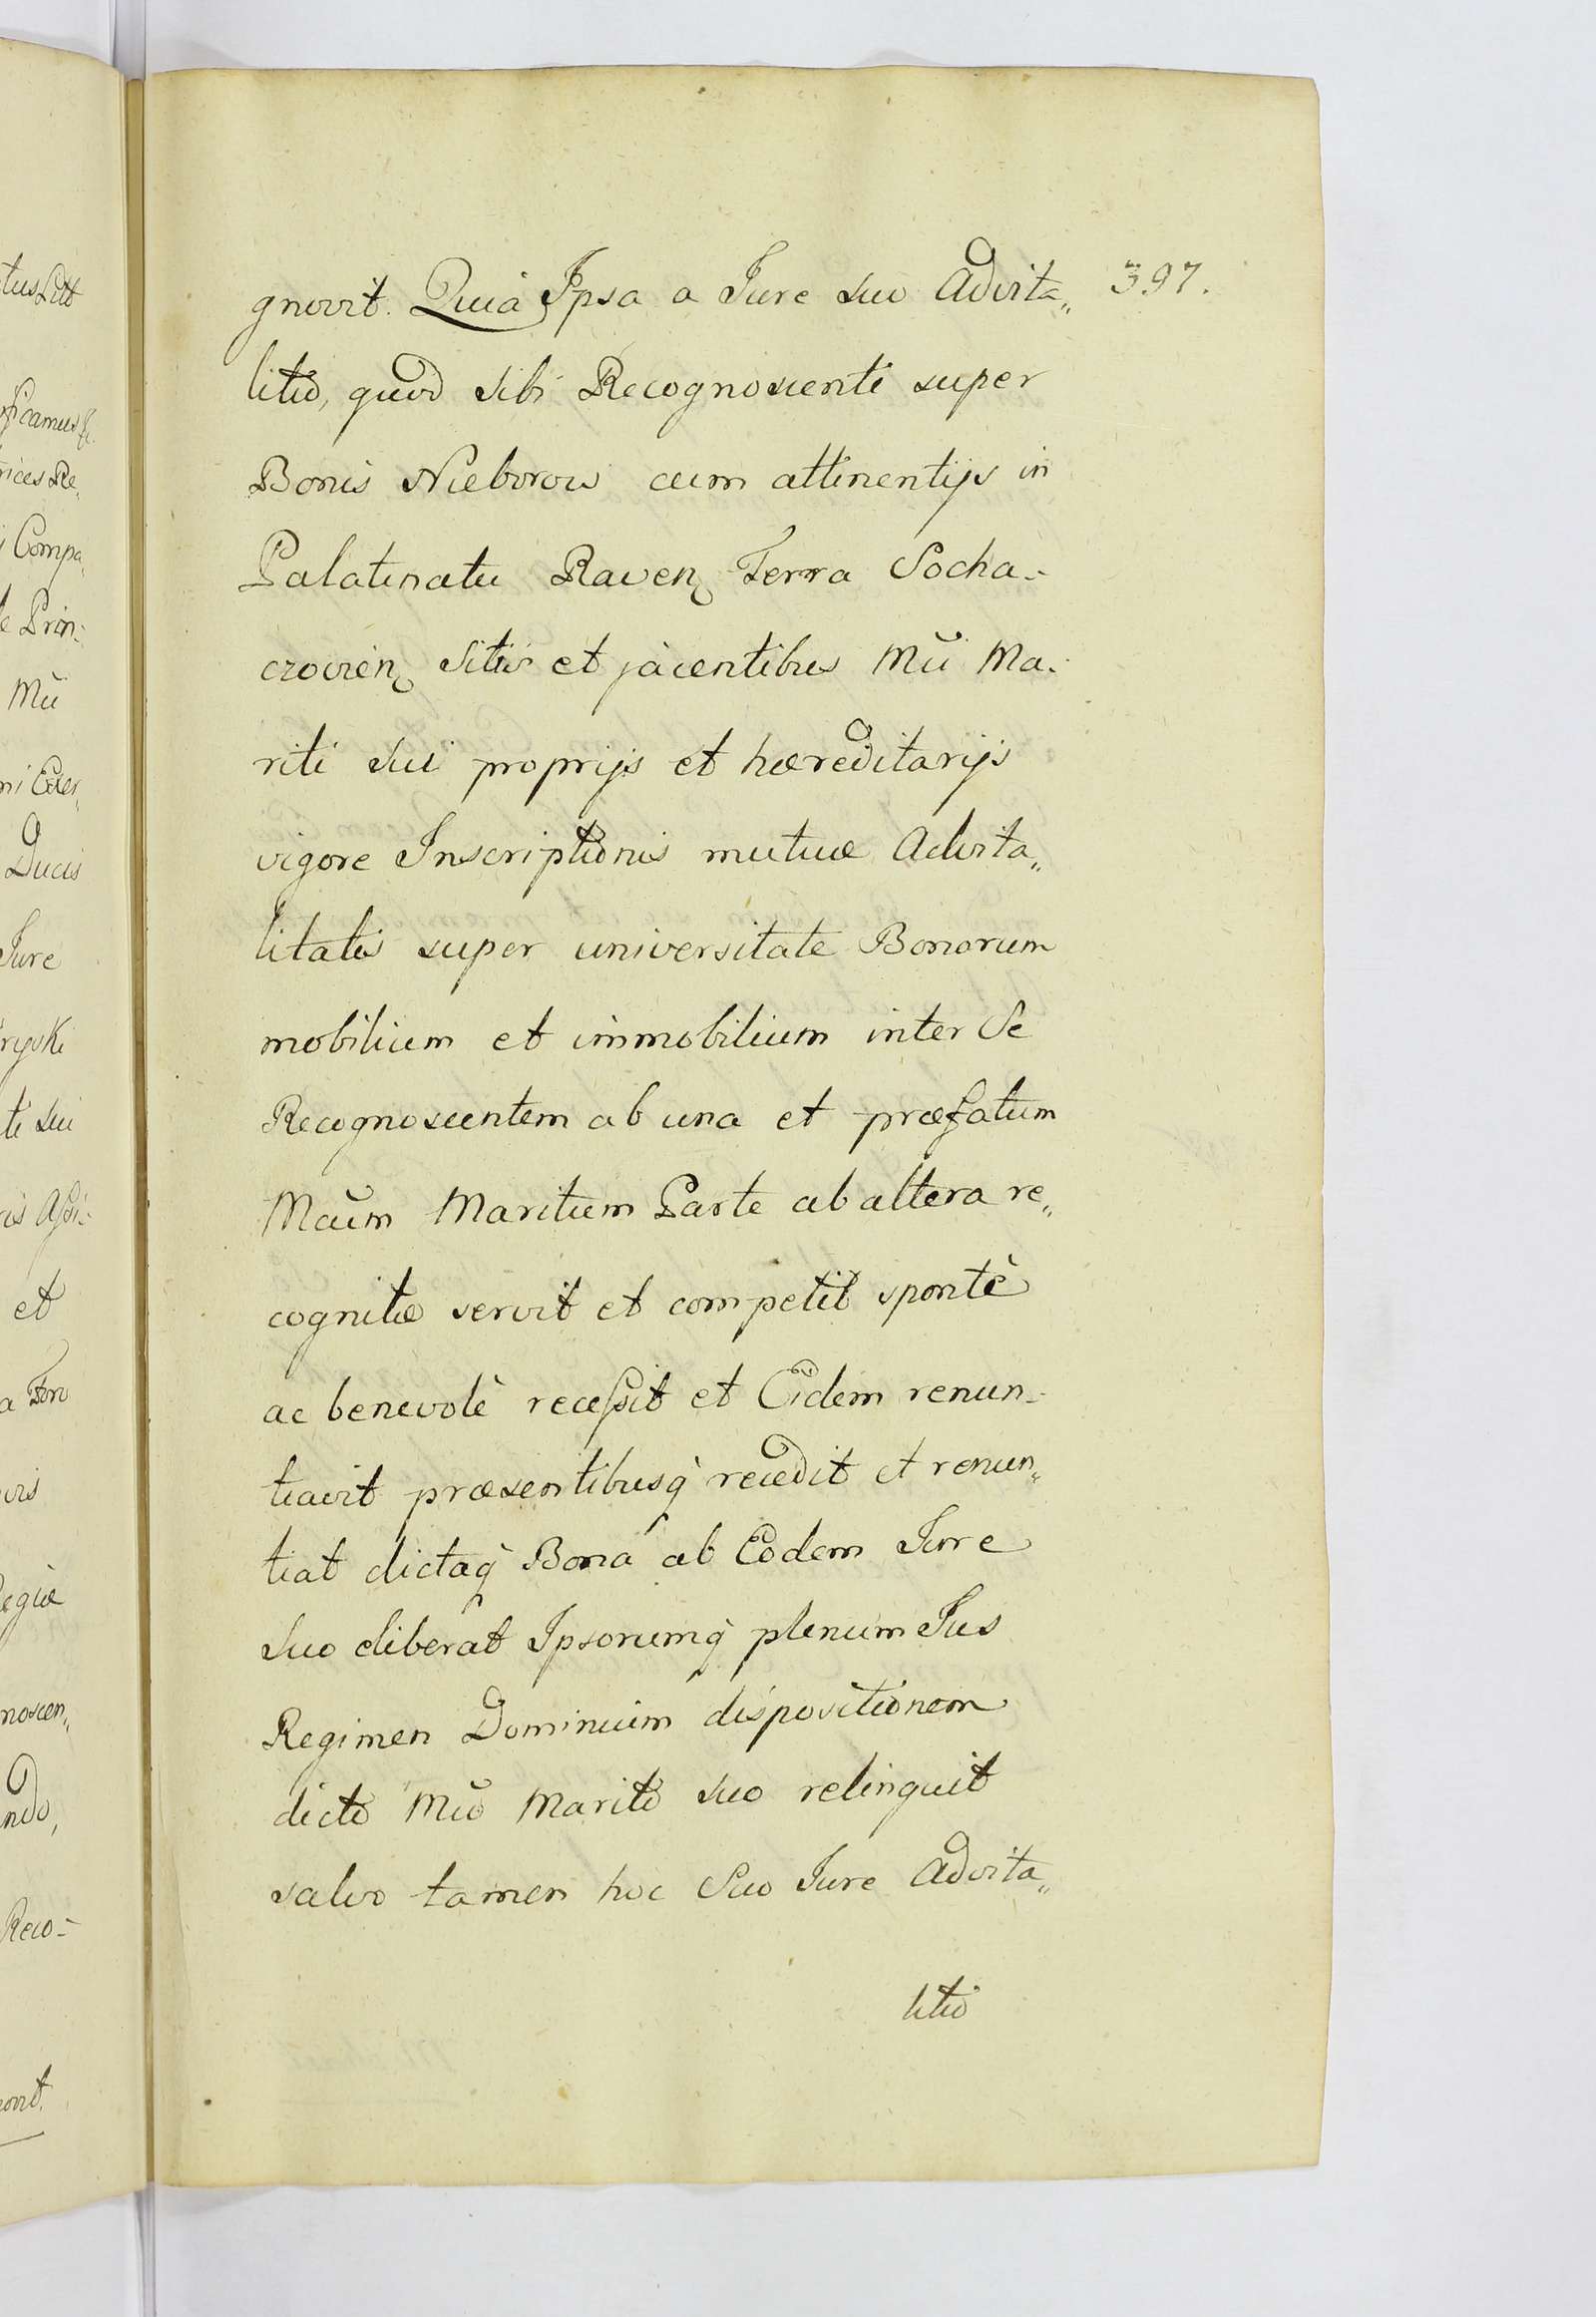 tus Litt
rices Re„
Compa„
Prin:
Mũ
Ducis
Jure
te sui
et
vis
noscen„
ndo,
Reco-
gnovit. Quia Ipsa a Jure suo Advita„ 397.
litio, quod sibi Recognoscenti super
Bonis Nieborow cum attinentijs in
Palatinatu Raven Terra Socha-
czovien sitis et jacentibus Mũ Ma-
riti sui proprijs et hæreditarijs
vigore Inscriptionis mutuæ Advita„
litatis super universitate Bonorum
mobilium et immobilium inter Se
Recognoscentem ab una et præfatum
Mãum Maritum Parte ab altera re„
cognitæ servit et competit spontè
ac benevolè recessit et Eidem renun-
tiavit præsentibusq̀ recedit et renun„
tiat dictaq̀ Bona ab Eodem Jure
suo eliberat Ipsorumq̀ plenum Jus
Regimen Dominium dispositionem
dicto Mũo Marito suo relinquit
salvo tamen hoc Suo Jure Advita„
litio